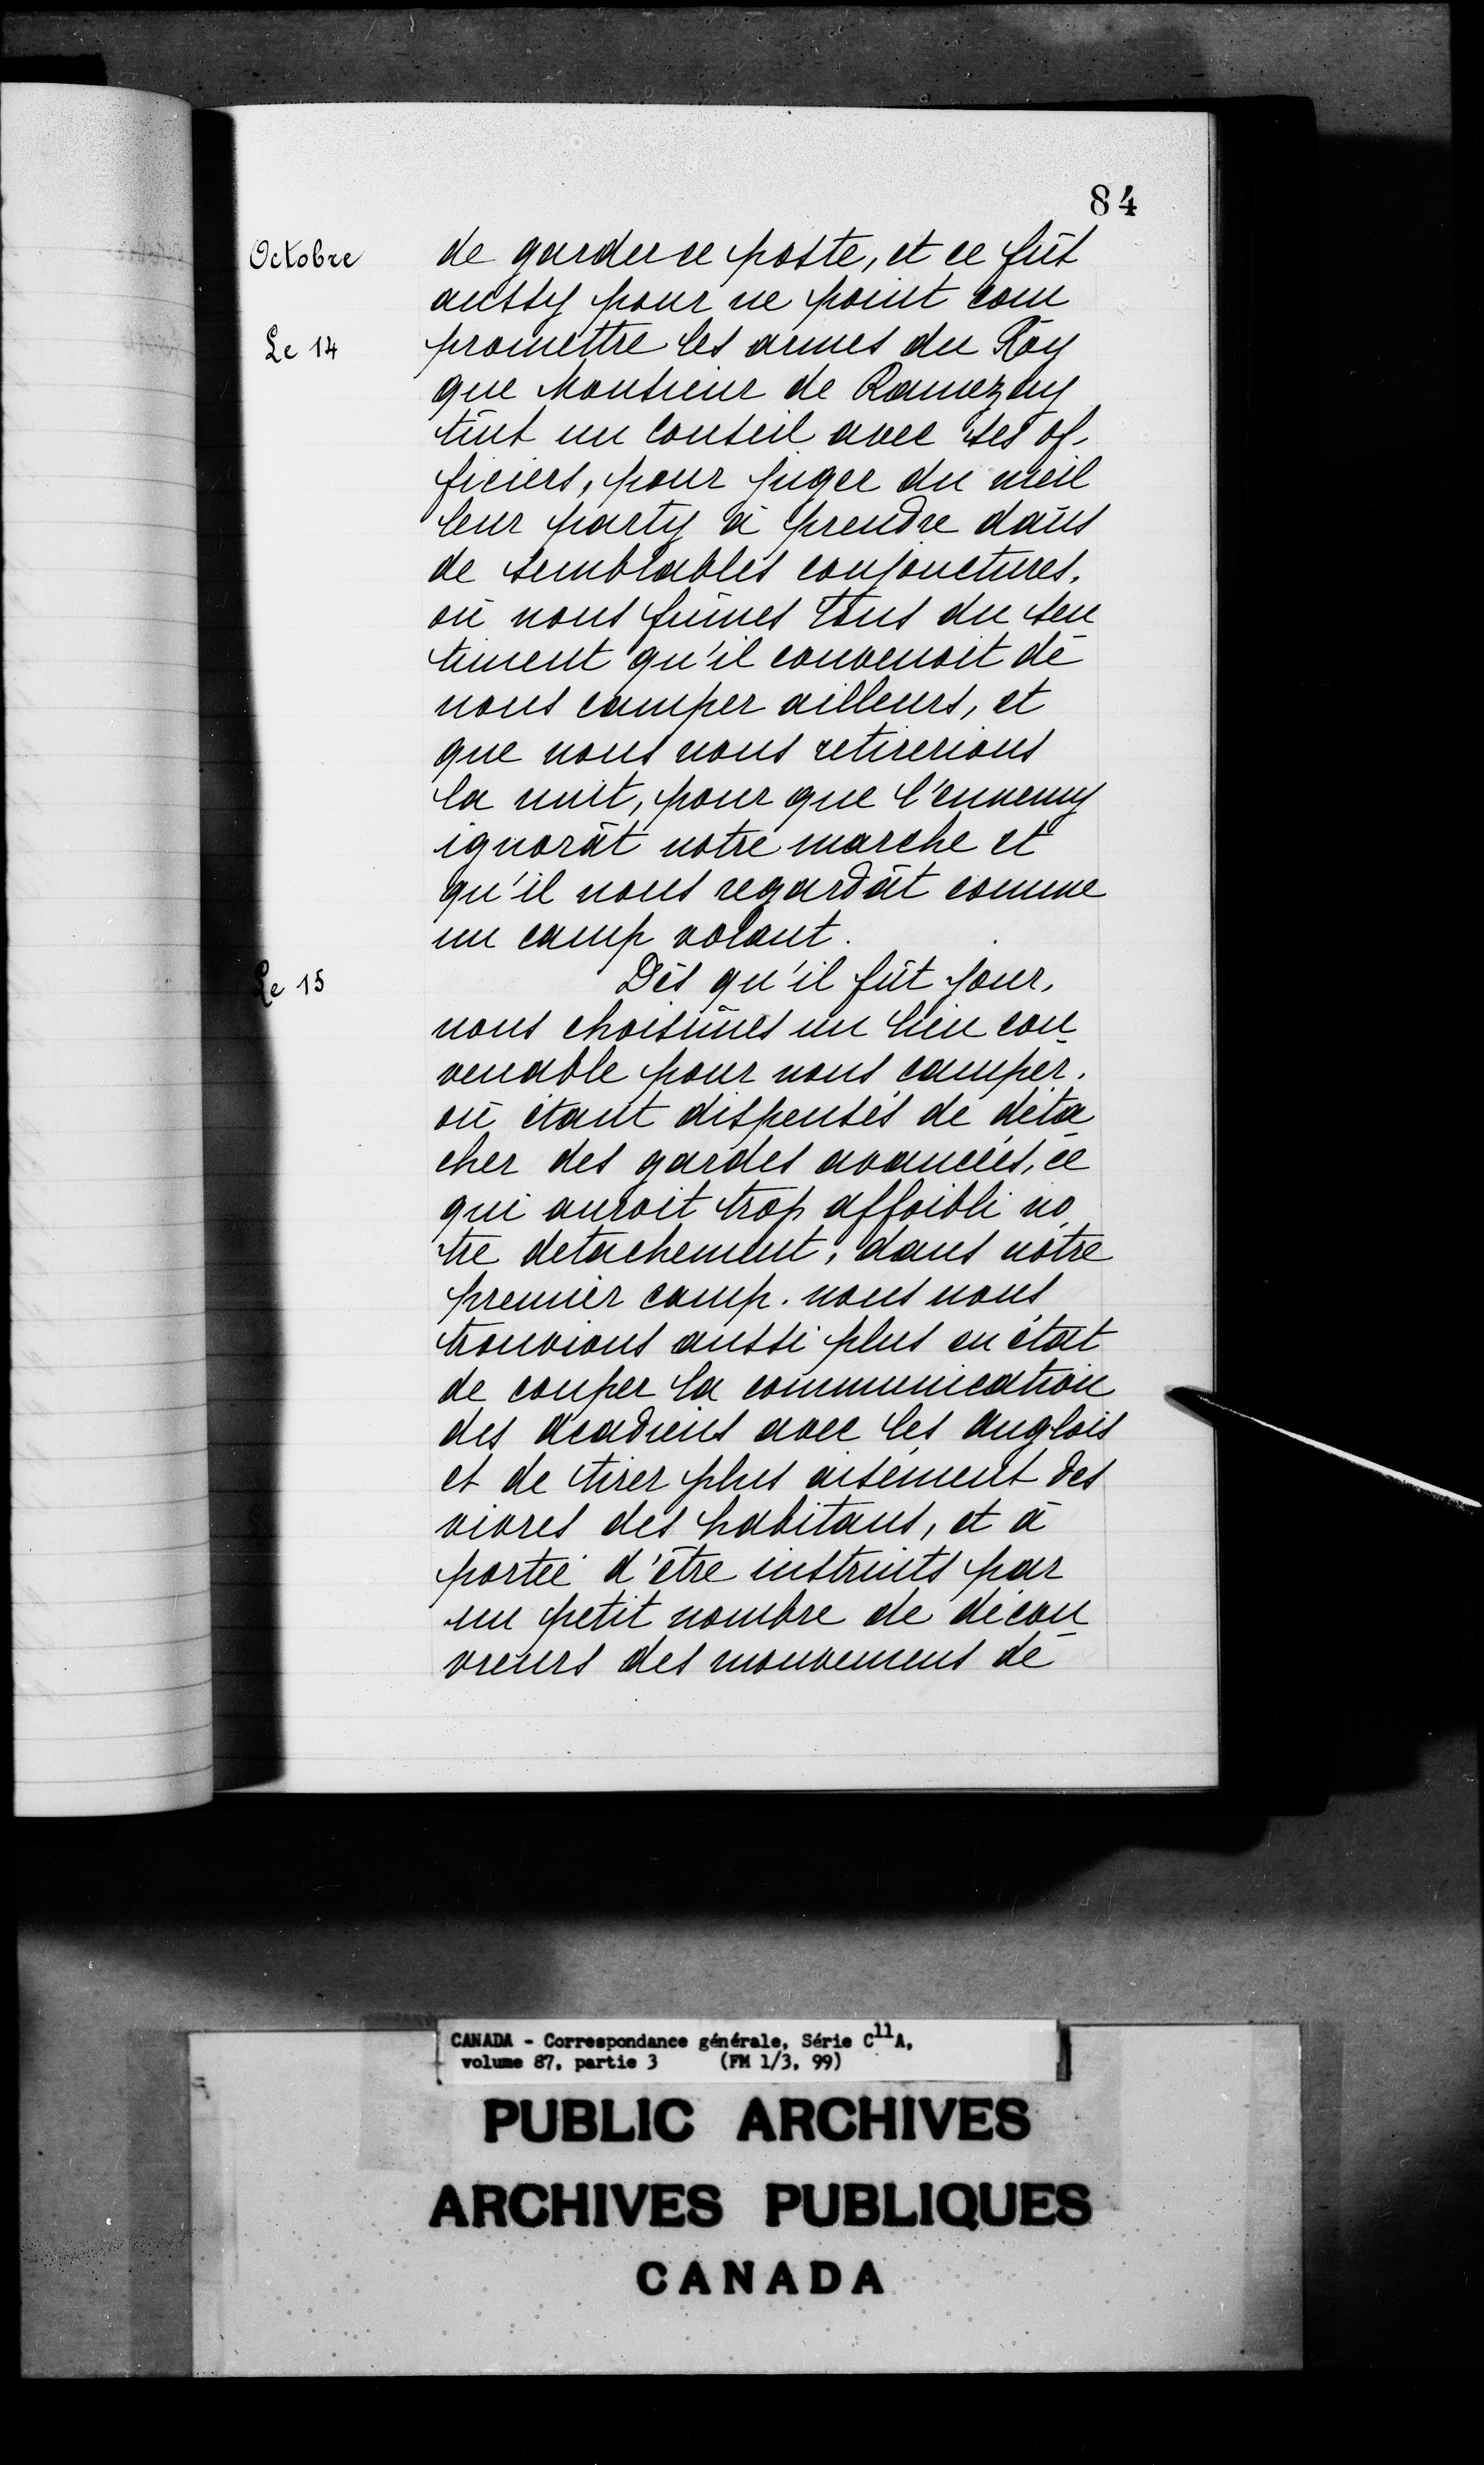 84
Octobre
de garder ce poste, et ce fût
aussy pour ne point com
Le 14
promettre les armes du Roy
que Monsieur de Ramezay
tint un conseil avec ses of-
ficiers, pour juger du meil
leur party à prendre dans
de semblables conjonctures,
où nous fûmes tous du sen
timent qu'il convenoit de
nous camper ailleurs, et
que nous nous retirerions
la nuit, pour que l'ennemy
ignorât notre marche et
qu'il nous regardât comme
un camp volant.
Le 15
Dès qu'il fût jour,
nous choisîmes un lieu con
venable pour nous camper.
où étant dispensés de déta
cher des gardes avancées, ce
qui auroit trop affoibli no
tre detachement, dans nôtre
premier camp. nous nous
trouvions aussi plus en état
de couper la communication
des acadiens avec les anglois
et de tirer plus aisément des
vivres des habitans, et à
portée d'être instruits par
un petit nombre de décou
vreurs des mouvemens de
CANADA - Correspondance générale, Série C11A,
volume 87, partie 3 (FM 1/3, 99)
PUBLIC ARCHIVES
ARCHIVES PUBLIQUES
CANADA